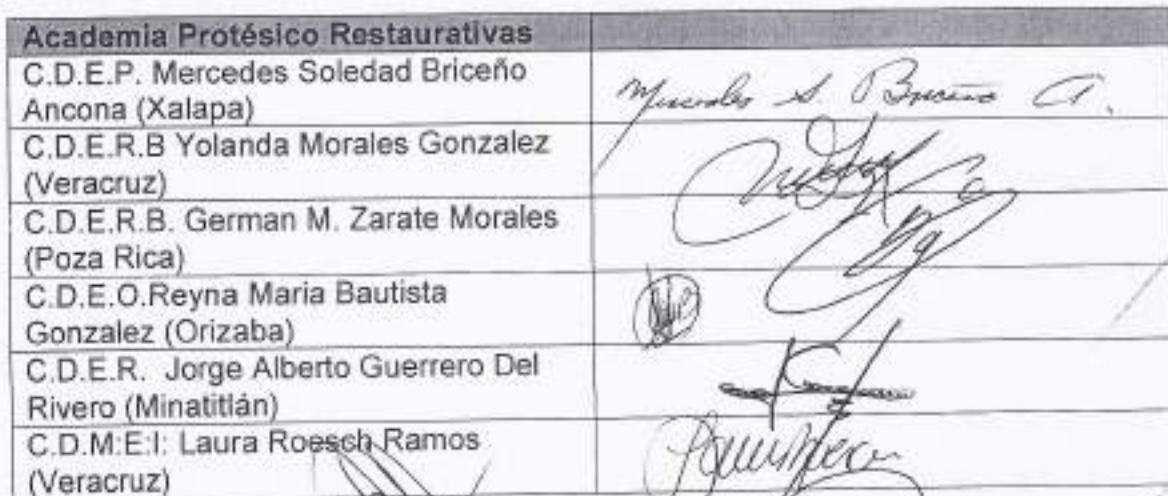 Academia Protésico Restaurativas
C.D.E.P. Mercedes Soledad Briceño
Ancona (Xalapa)
Mercedes S. Briceño A.
C.D.E.R.B Yolanda Morales Gonzalez
(Veracruz)
C.D.E.R.B. German M. Zarate Morales
(Poza Rica)
C.D.E.O.Reyna Maria Bautista
Gonzalez (Orizaba)
C.D.E.R. Jorge Alberto Guerrero Del
Rivero (Minatitlán)
C.D.M:E:I: Laura Roesch Ramos
(Veracruz)